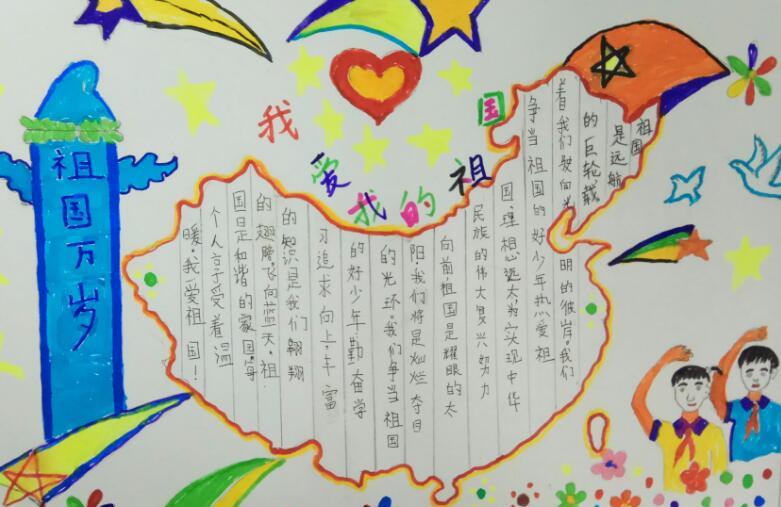 我爱我的祖国
祖国万岁
祖国
是远航
的巨轮载
着我们驶向光明的彼岸。我们
争当祖国的好少年热爱祖
国.理想远大为实现中华
民族的伟大复兴努力
向前祖国是耀眼的太
阳.我们将是灿烂夺目
的光环.我们争当祖国
的好少年勤奋学
习追求向上.丰富
的知识是我们翱翔
的翅膀.飞向蓝天.祖
国是和谐的家园.每
个人享受着温
暖.我爱祖国!